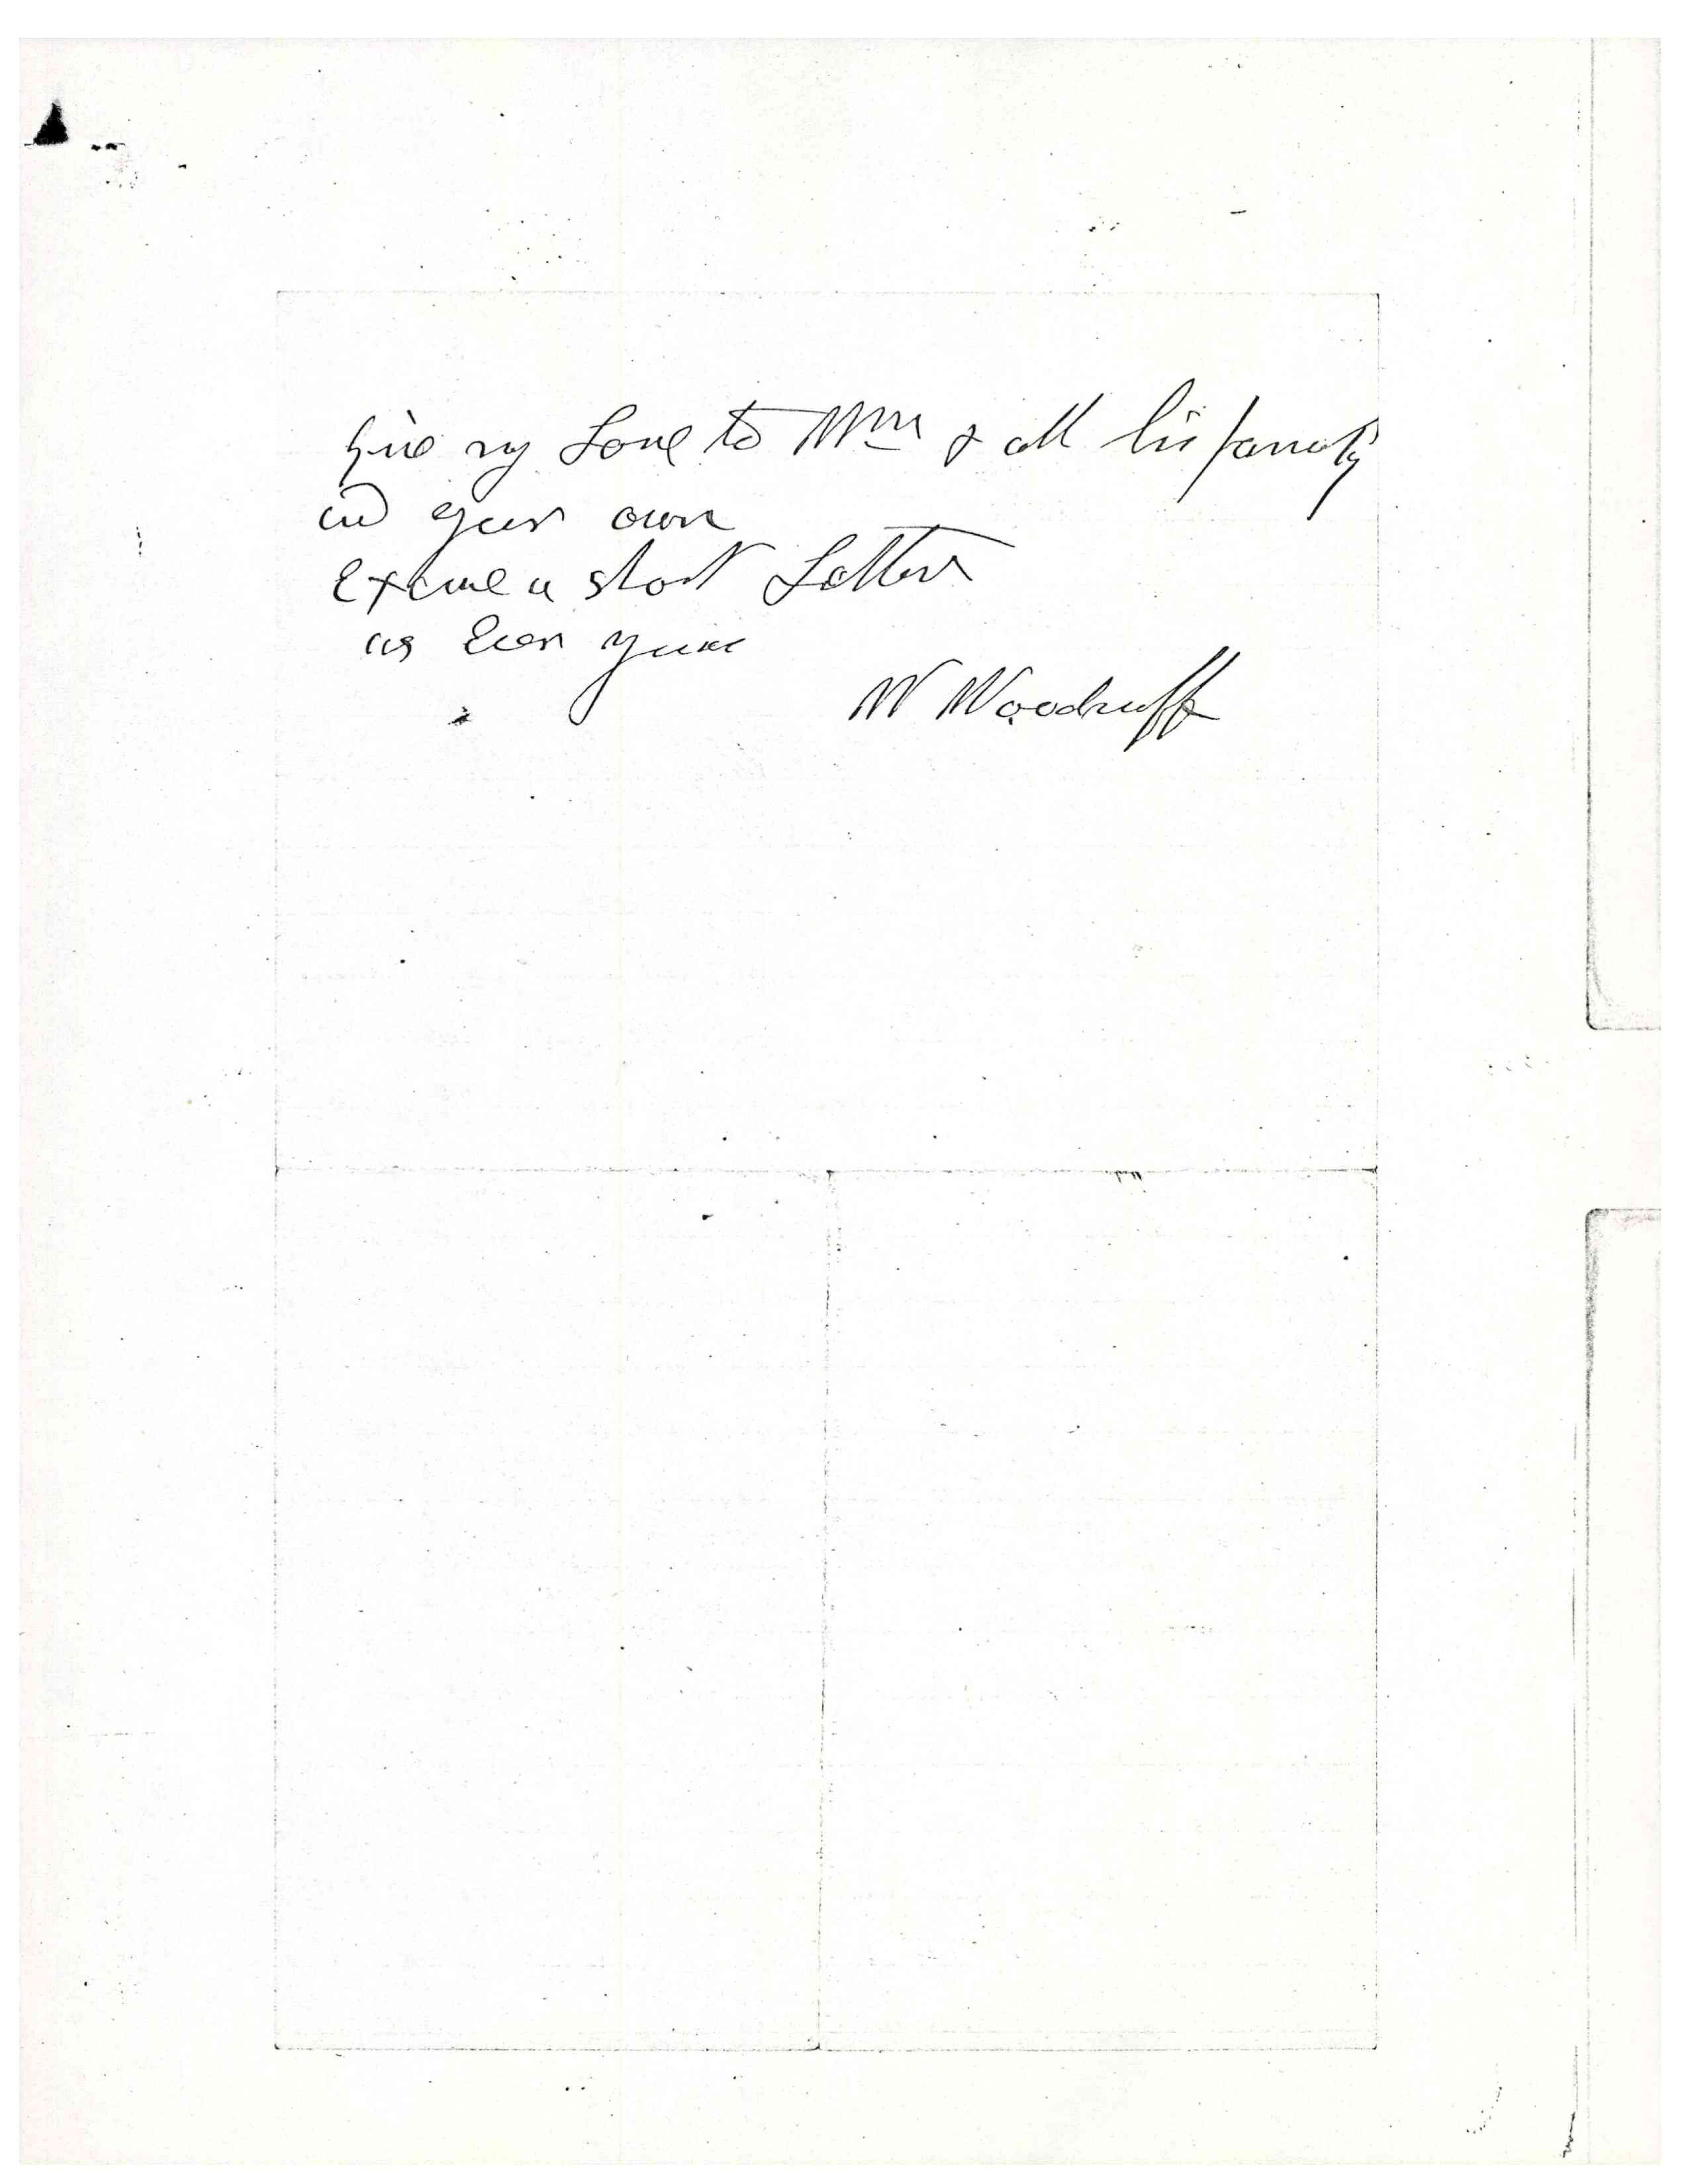 Give my Love to Wm & all his family
and your own
Excuse a short Letter
as Ever yours
W Woodruff